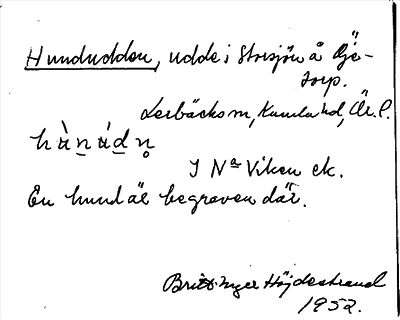 Hundudden, udde i Storsjön å Öje-
torp.
Lerbäcks sn, Kumla hd, Ör. l.
hùṇúḍṇ̥
I Na Viken ek.
En hund är begraven där.
Britt Inger Höjdestrand
1952.